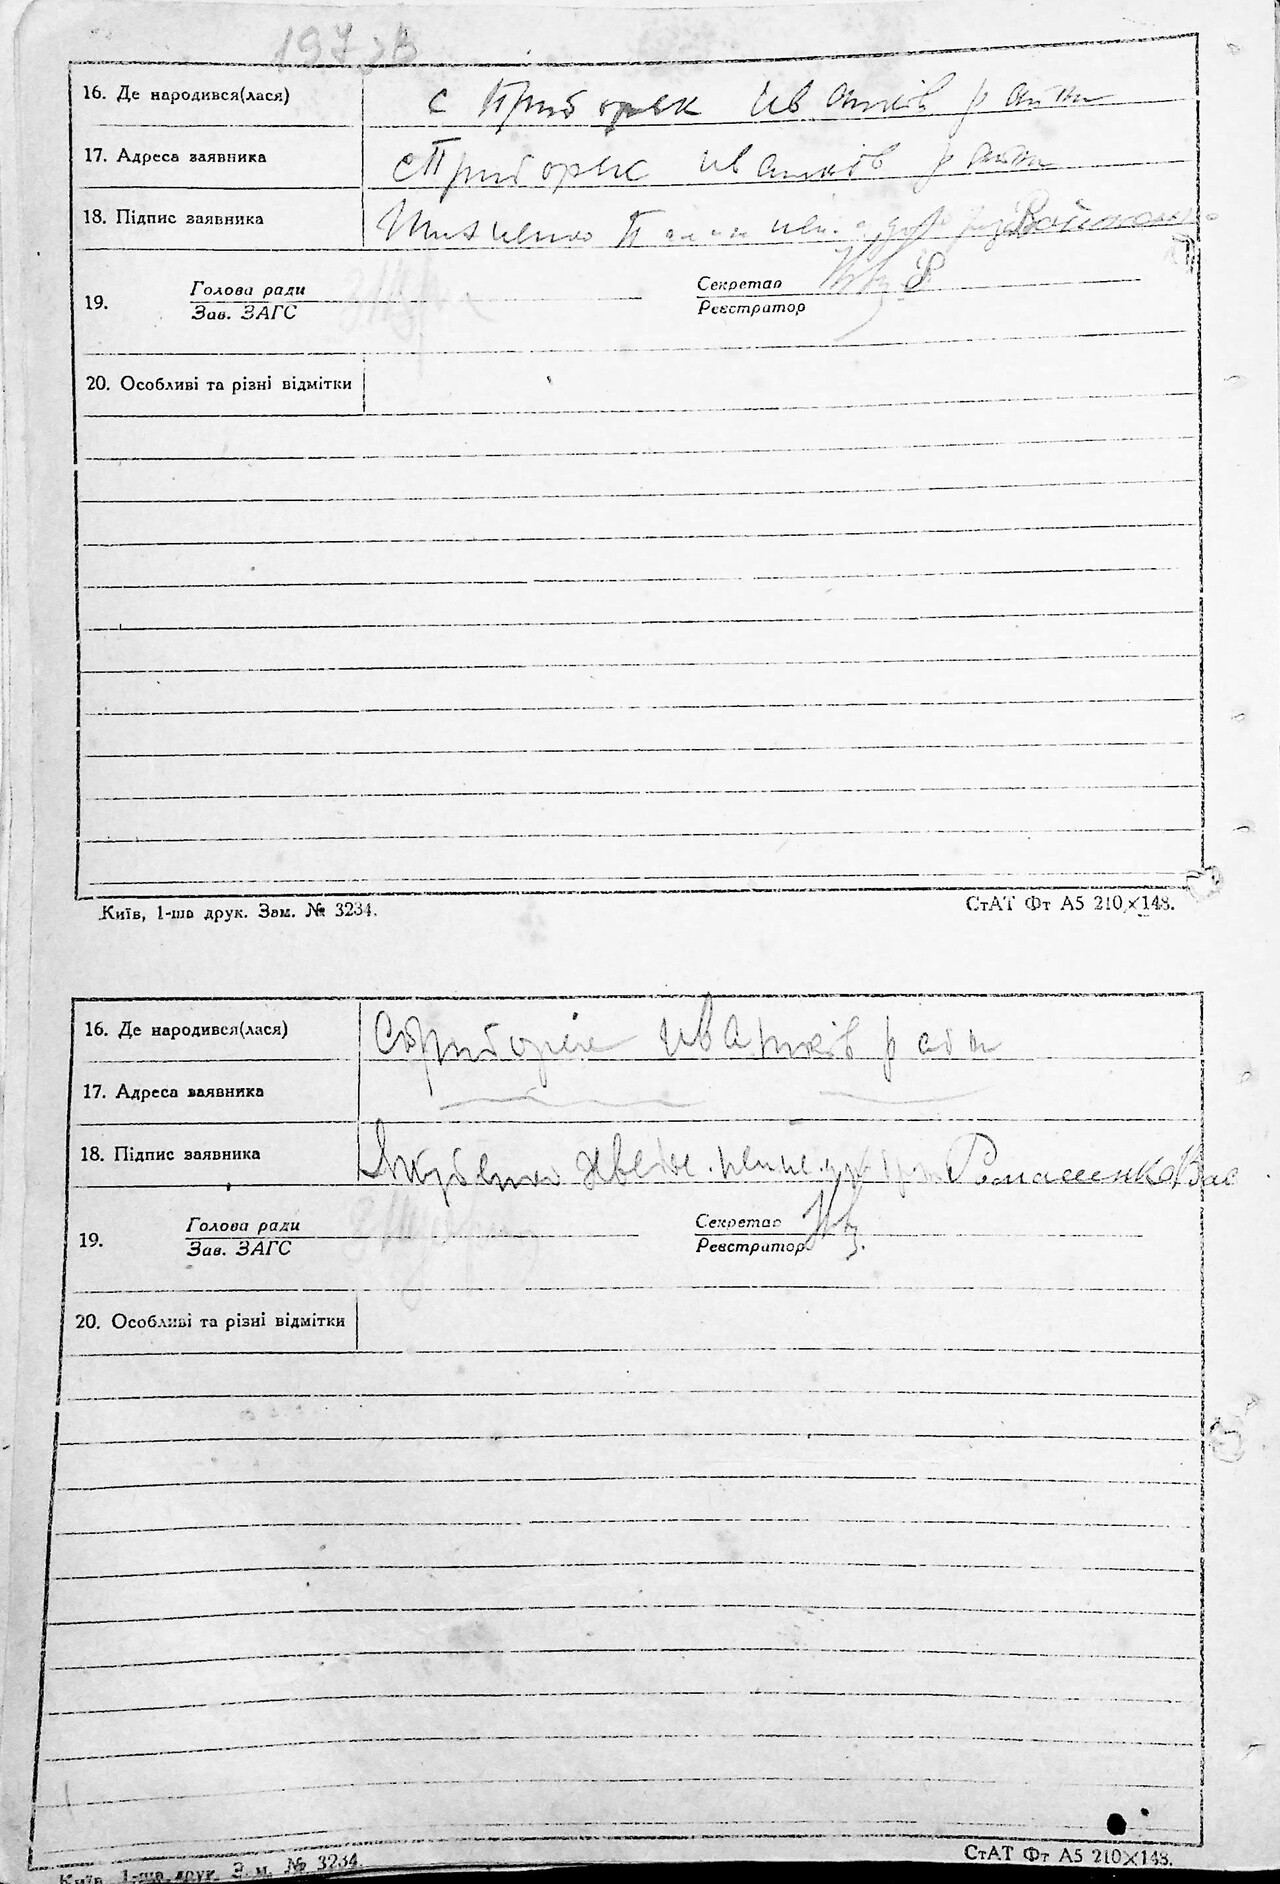 197зв
16. Де народився(лася) с Приборск Иванків район
17. Адреса заявника с Приборск Иванків район
18. Підпис заявника
19. Голова ради Секретар
Зав. ЗАГС Реєстратор
20. Особливі та різні відмітки
Київ, 1-ша друк. Зам. № 3234. СтАТ Фт А5 210×148.
16. Де народився(лася) с Приборск Иванків район
17. Адреса заявника
18. Підпис заявника Романенко Вас
19. Голова ради Секретар
Зав. ЗАГС Реєстратор
20. Особливі та різні відмітки
Київ, 1-ша друк. Зам. № 3234. СтАТ Фт А5 210×148.